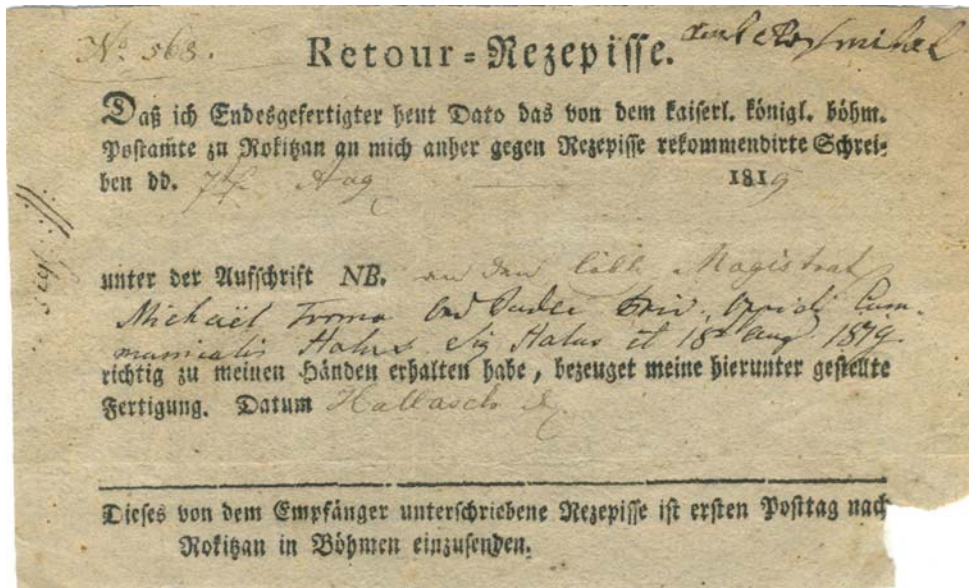 No 563.
Retour=Rezepisse.
Daß ich Endesgefertigter heut Dato das von dem kaiserl. königl. böhm.
Postamte zu Rokitzan an mich anher gegen Rezepisse rekommendirte Schrei=
ben dd. 7t Aug 1819
unter der Aufschrift NB. an den löbl. Magistrat
Michaël
Halas Sig Halas 18 aug 1819.
richtig zu meinen Händen erhalten habe, bezeuget meine hierunter gestellte
Fertigung. Datum Hallasch
Dieses von dem Empfänger unterschriebene Rezepisse ist ersten Posttag nach
Rokitzan in Böhmen einzusenden.